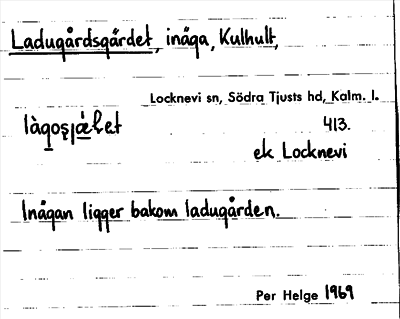 Ladugårdsgärdet, inäga, Kulhult,
Locknevi sn, Södra Tjusts hd, Kalm. l.
413.
ek Locknevi
Inägan ligger bakom ladugården.
Per Helge 1969